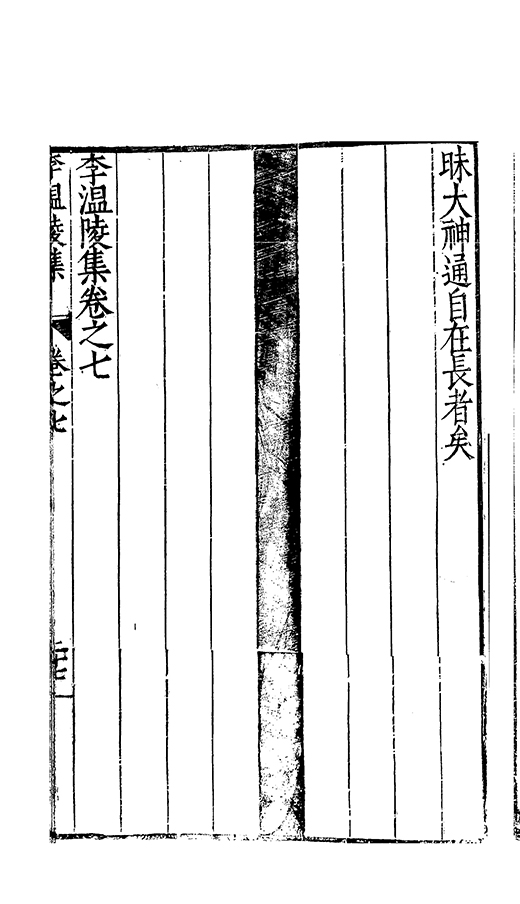 昧大神通自在長者矣
李温陵集卷之七
李温陵集 卷之七